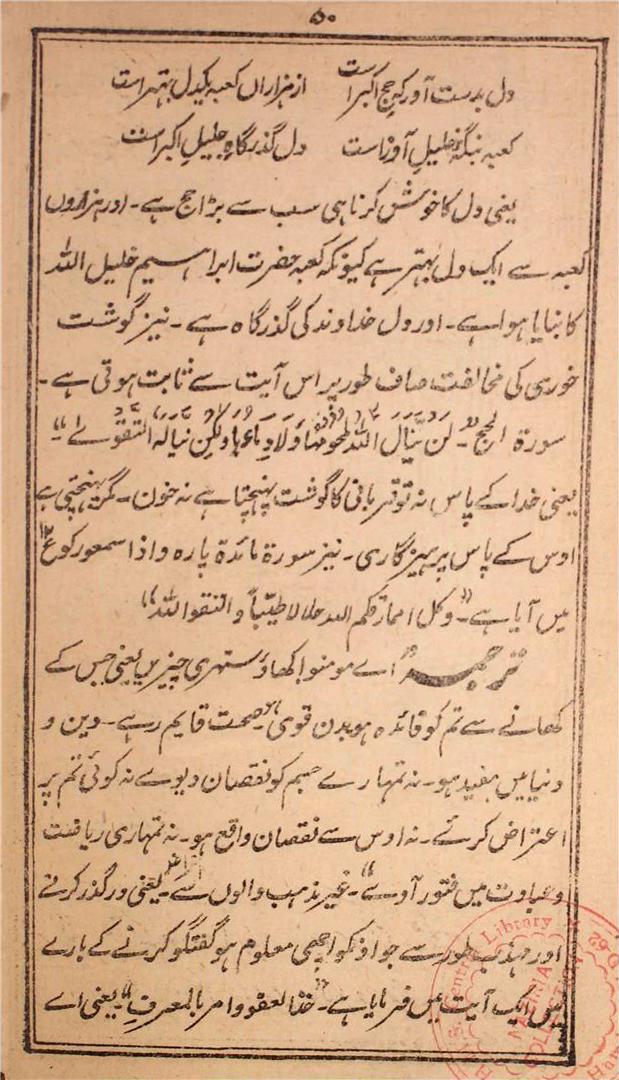 ۵۰
دل بدست آور کہ حج اکبر است از ہزاراں کعبہ یکدل بہتر است
کعبہ بنگہ خلیل آوزاست دل گذرگاہ جلیل اکبر است
یعنی دل کا خوش کرنا ہی سب سے بڑا حج ہے۔ اور ہزاروں
کعبہ سے ایک دل بہتر ہے کیونکہ کعبہ حضرت ابراہیم خلیل اللہ
کا بنایا ہوا ہے۔ اور دل خداوند کی گذرگاہ ہے۔ نیز گوشت
خوری کی مخالفت صاف طور پر اس آیت سے ثابت ہوتی ہے۔
سورۃ الحج۔ لَن یَّنَالَ اللہَ لحومُھَا وَلَا دِمَاءُھَا وَلٰکِن یَّنَالُہ التَّقوٰے
یعنی خدا کے پاس نہ تو قربانی کا گوشت پہنچتا ہے نہ خون۔ مگر پہنچتی ہے
اوس کے پاس پرہیزگاری۔ نیز سورۃ مائدۃ پارہ واذا سمعو رکوع ۱۲
میں آیا ہے۔ وکلو امما رزقکم اللہ حلالا طیّباً والتقوا اللہ
ترجمہ اے مومنو! کھاؤ ستھری چیزیں یعنی جس کے
کھانے سے تم کو فائدہ ہو بدن قوی ہو صحت قایم رہے۔ دین و
دنیا میں مفید ہو۔ نہ تمہارے جسم کو نقصان دیوے نہ کوئی تم پر
اعتراض کرے۔ نہ اوس سے نقصان واقع ہو۔ نہ تمہاری ریاضت
و عبادت میں فتور آوے۔ غیر مذہب والوں سے یعنی درگذر کرنے
اور مہذب طور سے جو اونکو اچھی معلوم ہو گفتگو کرنے کے بارے
میں ایک آیت میں فرمایا ہے۔ خذالعفو وامر بالمعرف۔ یعنی اے
Central Library